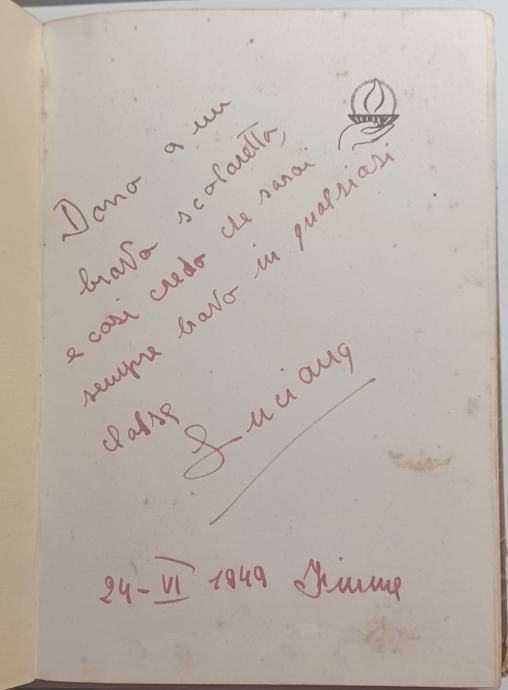 Dono a un
bravo scolaretto,
e così credo che sarai
sempre bravo in qualsiasi
classe
Luciana
24-VI 1949 Fiume